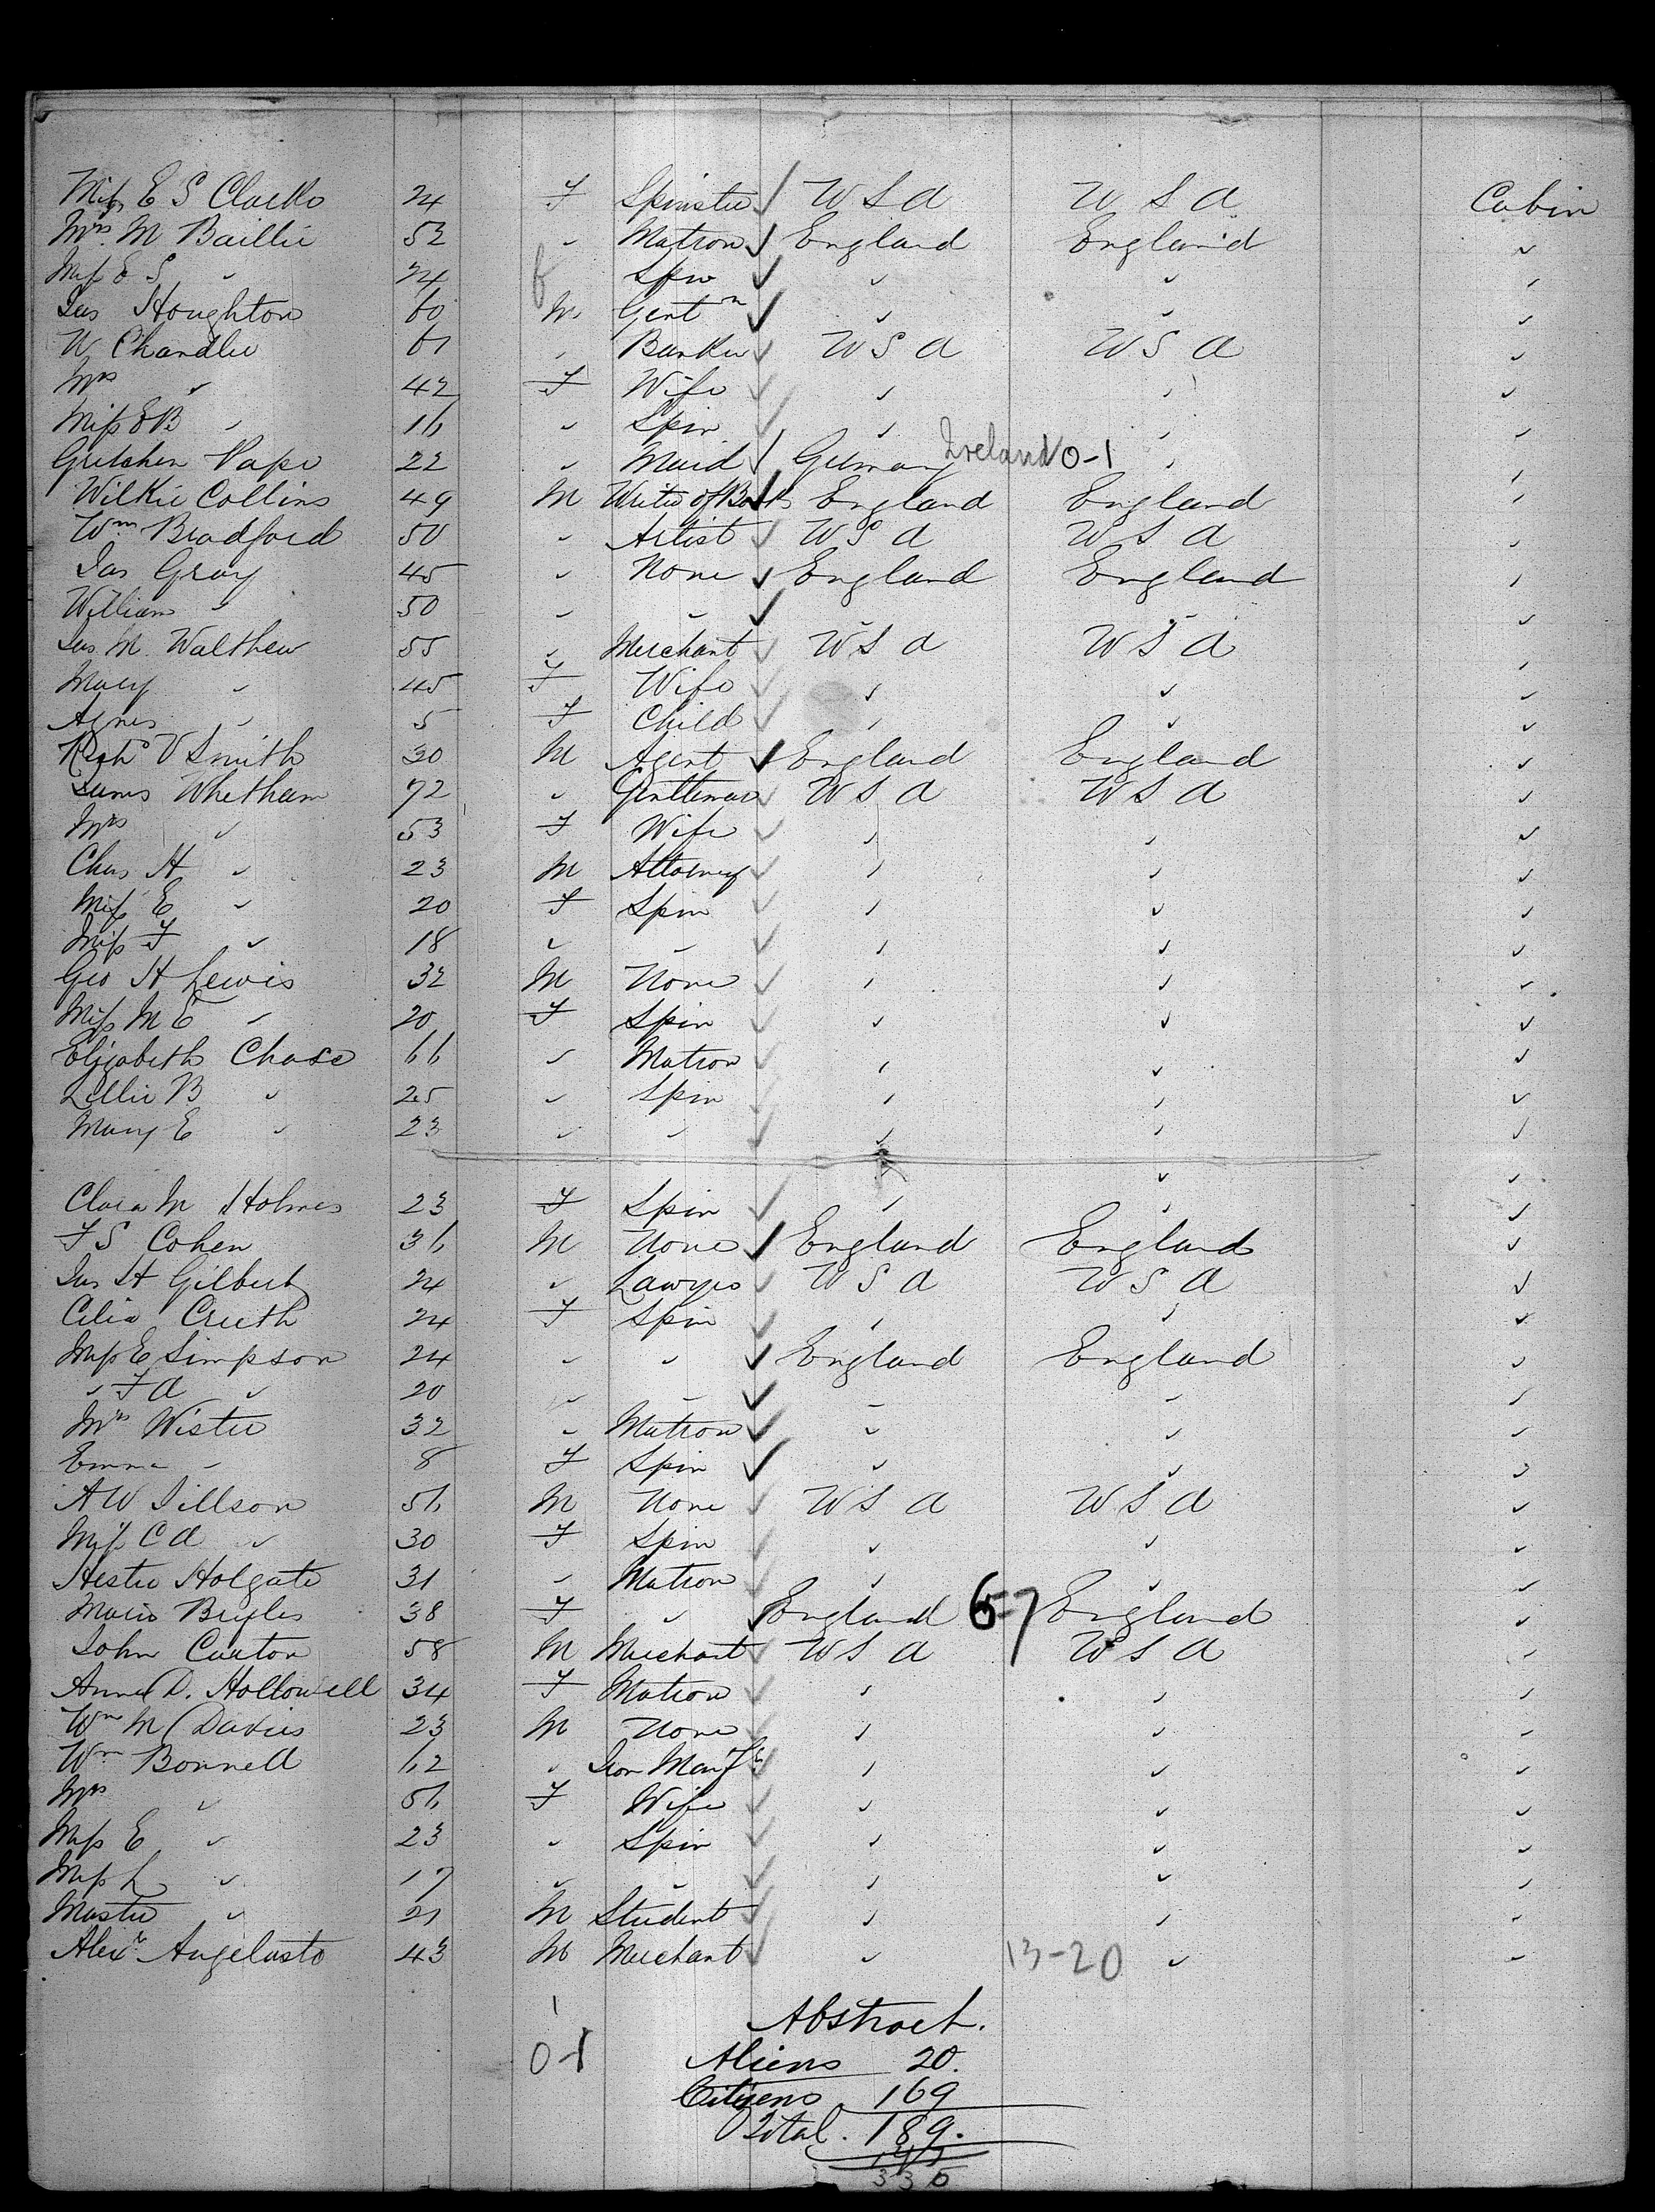 Miss E S Clarke 24 F Spinster U S A U S A Cabin
Mrs. M Baillie 52 " Matron England England "
Miss E S " 24 " Spin " " "
Jas Houghton 60 M Gentn " " "
W Chandler 61 " Banker U S A U S A "
Mrs " 42 F Wife " " "
Miss E B " 16 " Spin " " "
Gretchen Pape 22 " Maid Germany Ireland 0-1 " "
Wilkie Collins 49 M Writer of Books England England "
Wm Bradford 50 " Artist U S A U S A "
Jas Gray 45 " None England England "
William " 50 " " " " "
Jas M. Walthew 55 " Merchant U S A U S A "
Mary " 45 F Wife " " "
Agnes " 5 F Child " " "
V Smith 30 M Agent England England "
James Whetham 72 " Gentleman U S A U S A "
Mrs " 53 F Wife " " "
Chas H " 23 M Attorney " " "
Miss E " 20 F Spin " " "
Miss F " 18 " " " " "
Geo H Lewis 32 M None " " "
Miss M E " 20 F Spin " " "
Elizabeth Chase 66 " Matron " " "
Lillie B " 25 " Spin " " "
Mary E " 23 " " " " "
Clara M Holmes 23 F Spin " " "
F S Cohen 36 M None England England "
Jas H Gilbert 24 " Lawyer U S A U S A "
Celia Crieth 24 F Spin " " "
Miss E Simpson 24 " " England England "
" F A " 20 " " " " "
Mrs Wister 32 " Matron " " "
Emma " 8 F Spin " " "
A W Jillson 56 M None U S A U S A "
Miss C A " 30 F Spin " " "
Hester Holgate 31 " Matron " " "
Maria 38 F " England 6-7 England "
John Caxton 58 M Merchant U S A U S A "
Anna D. Hollowell 34 F Matron " " "
Wm M Davies 23 M None " " "
Wm Bonnell 62 " Iron Manfr " " "
Mrs " 56 F Wife " " "
Miss E " 23 " Spin " " "
Miss L " 17 " " " " "
Master " 21 M Student " " "
Alexr Angelasto 43 M Merchant " 13-20 " "
Abstract.
0-1 Aliens 20.
Citizens 169
Total. 189.
335